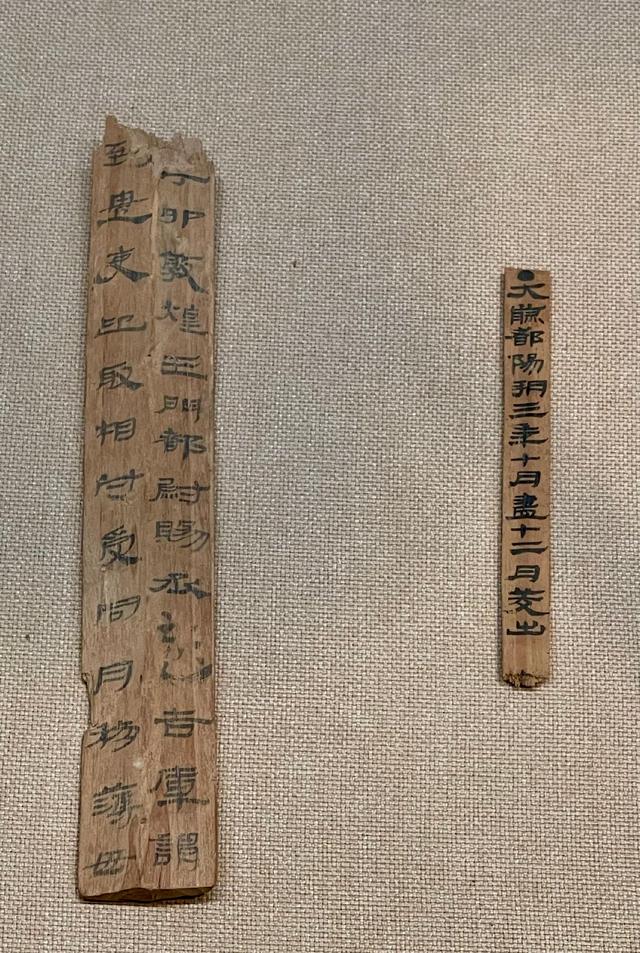 ●大煎都陽朔三年十月盡十二月茭出
丁卯敦煌玉門都尉賜丞告庫謂
到遣吏迎取相付受同月物薄毋